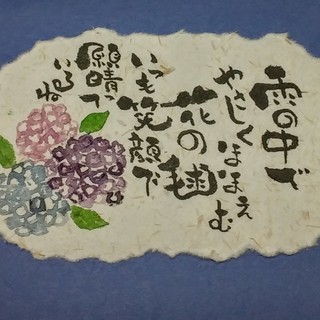 雨の中で
やさしくほほえむ
花の毬
いつも笑顔で
願晴っ
いるね